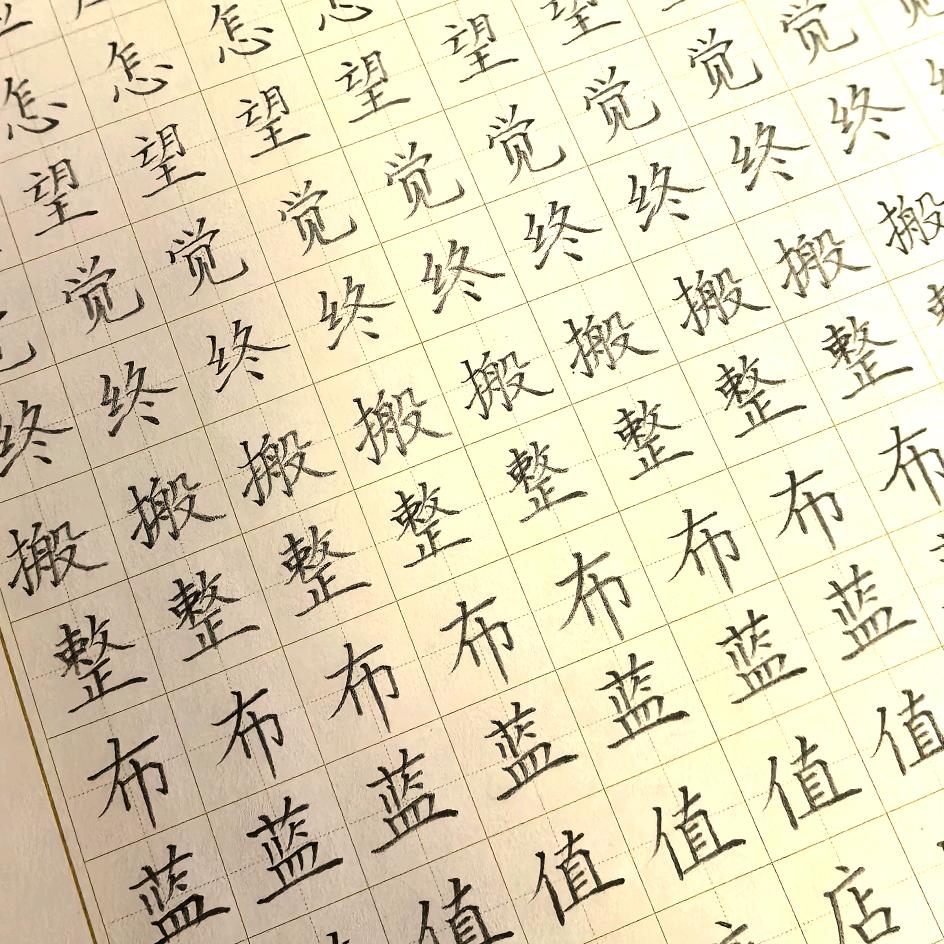 怎怎怎怎
望望望望望望
觉觉觉觉觉觉觉觉
终终终终终终终终终
搬搬搬搬搬搬搬搬搬
整整整整整整整整
布布布布布布布布
蓝蓝蓝蓝蓝蓝蓝
值值值值值
店